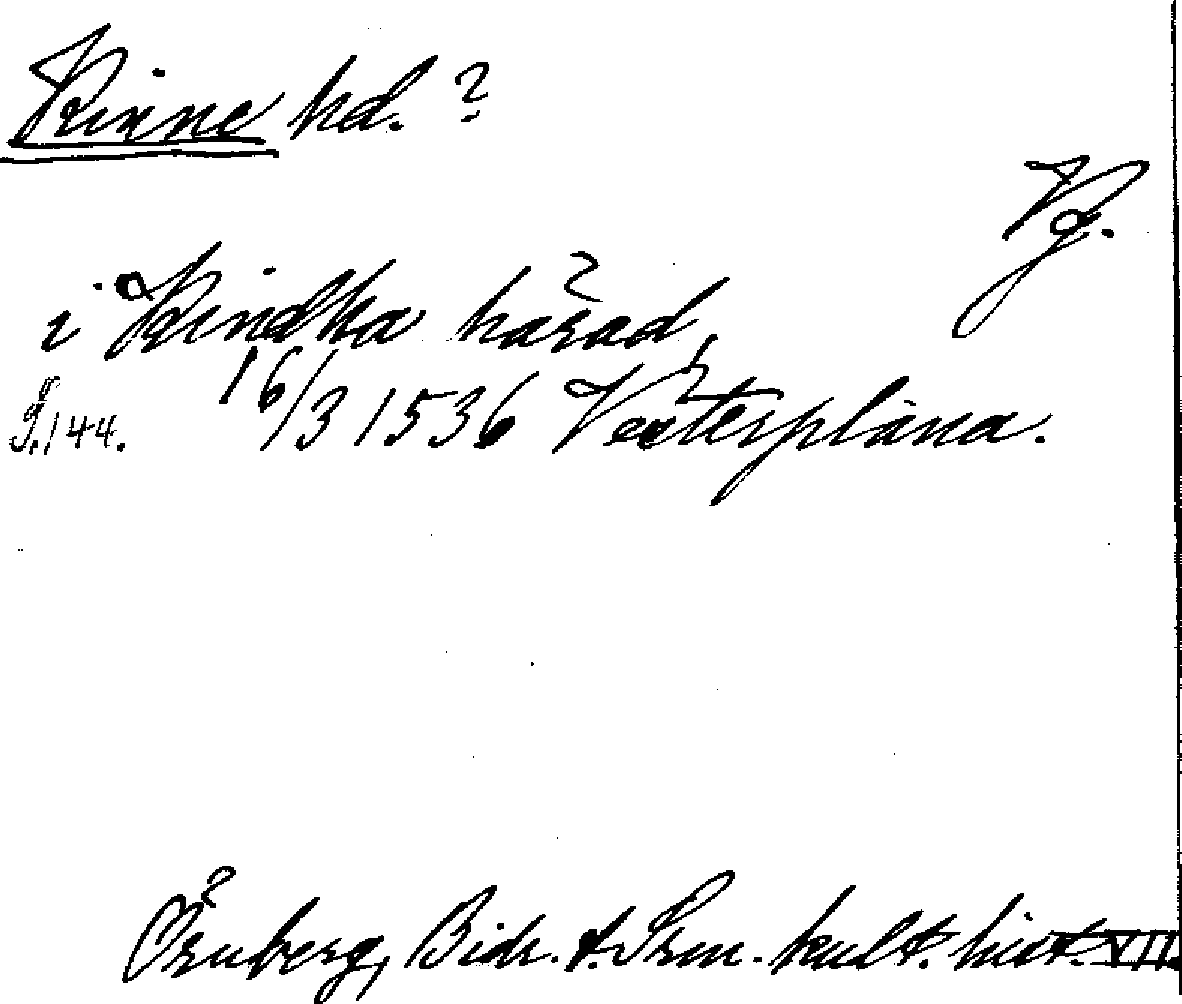 Kinne hd.?
Vg.
i Kindha härad,
16/3 1536 Vesterplana.
g.144.
Örnberg, Bidr. t. Srm. kult. hist. VII.